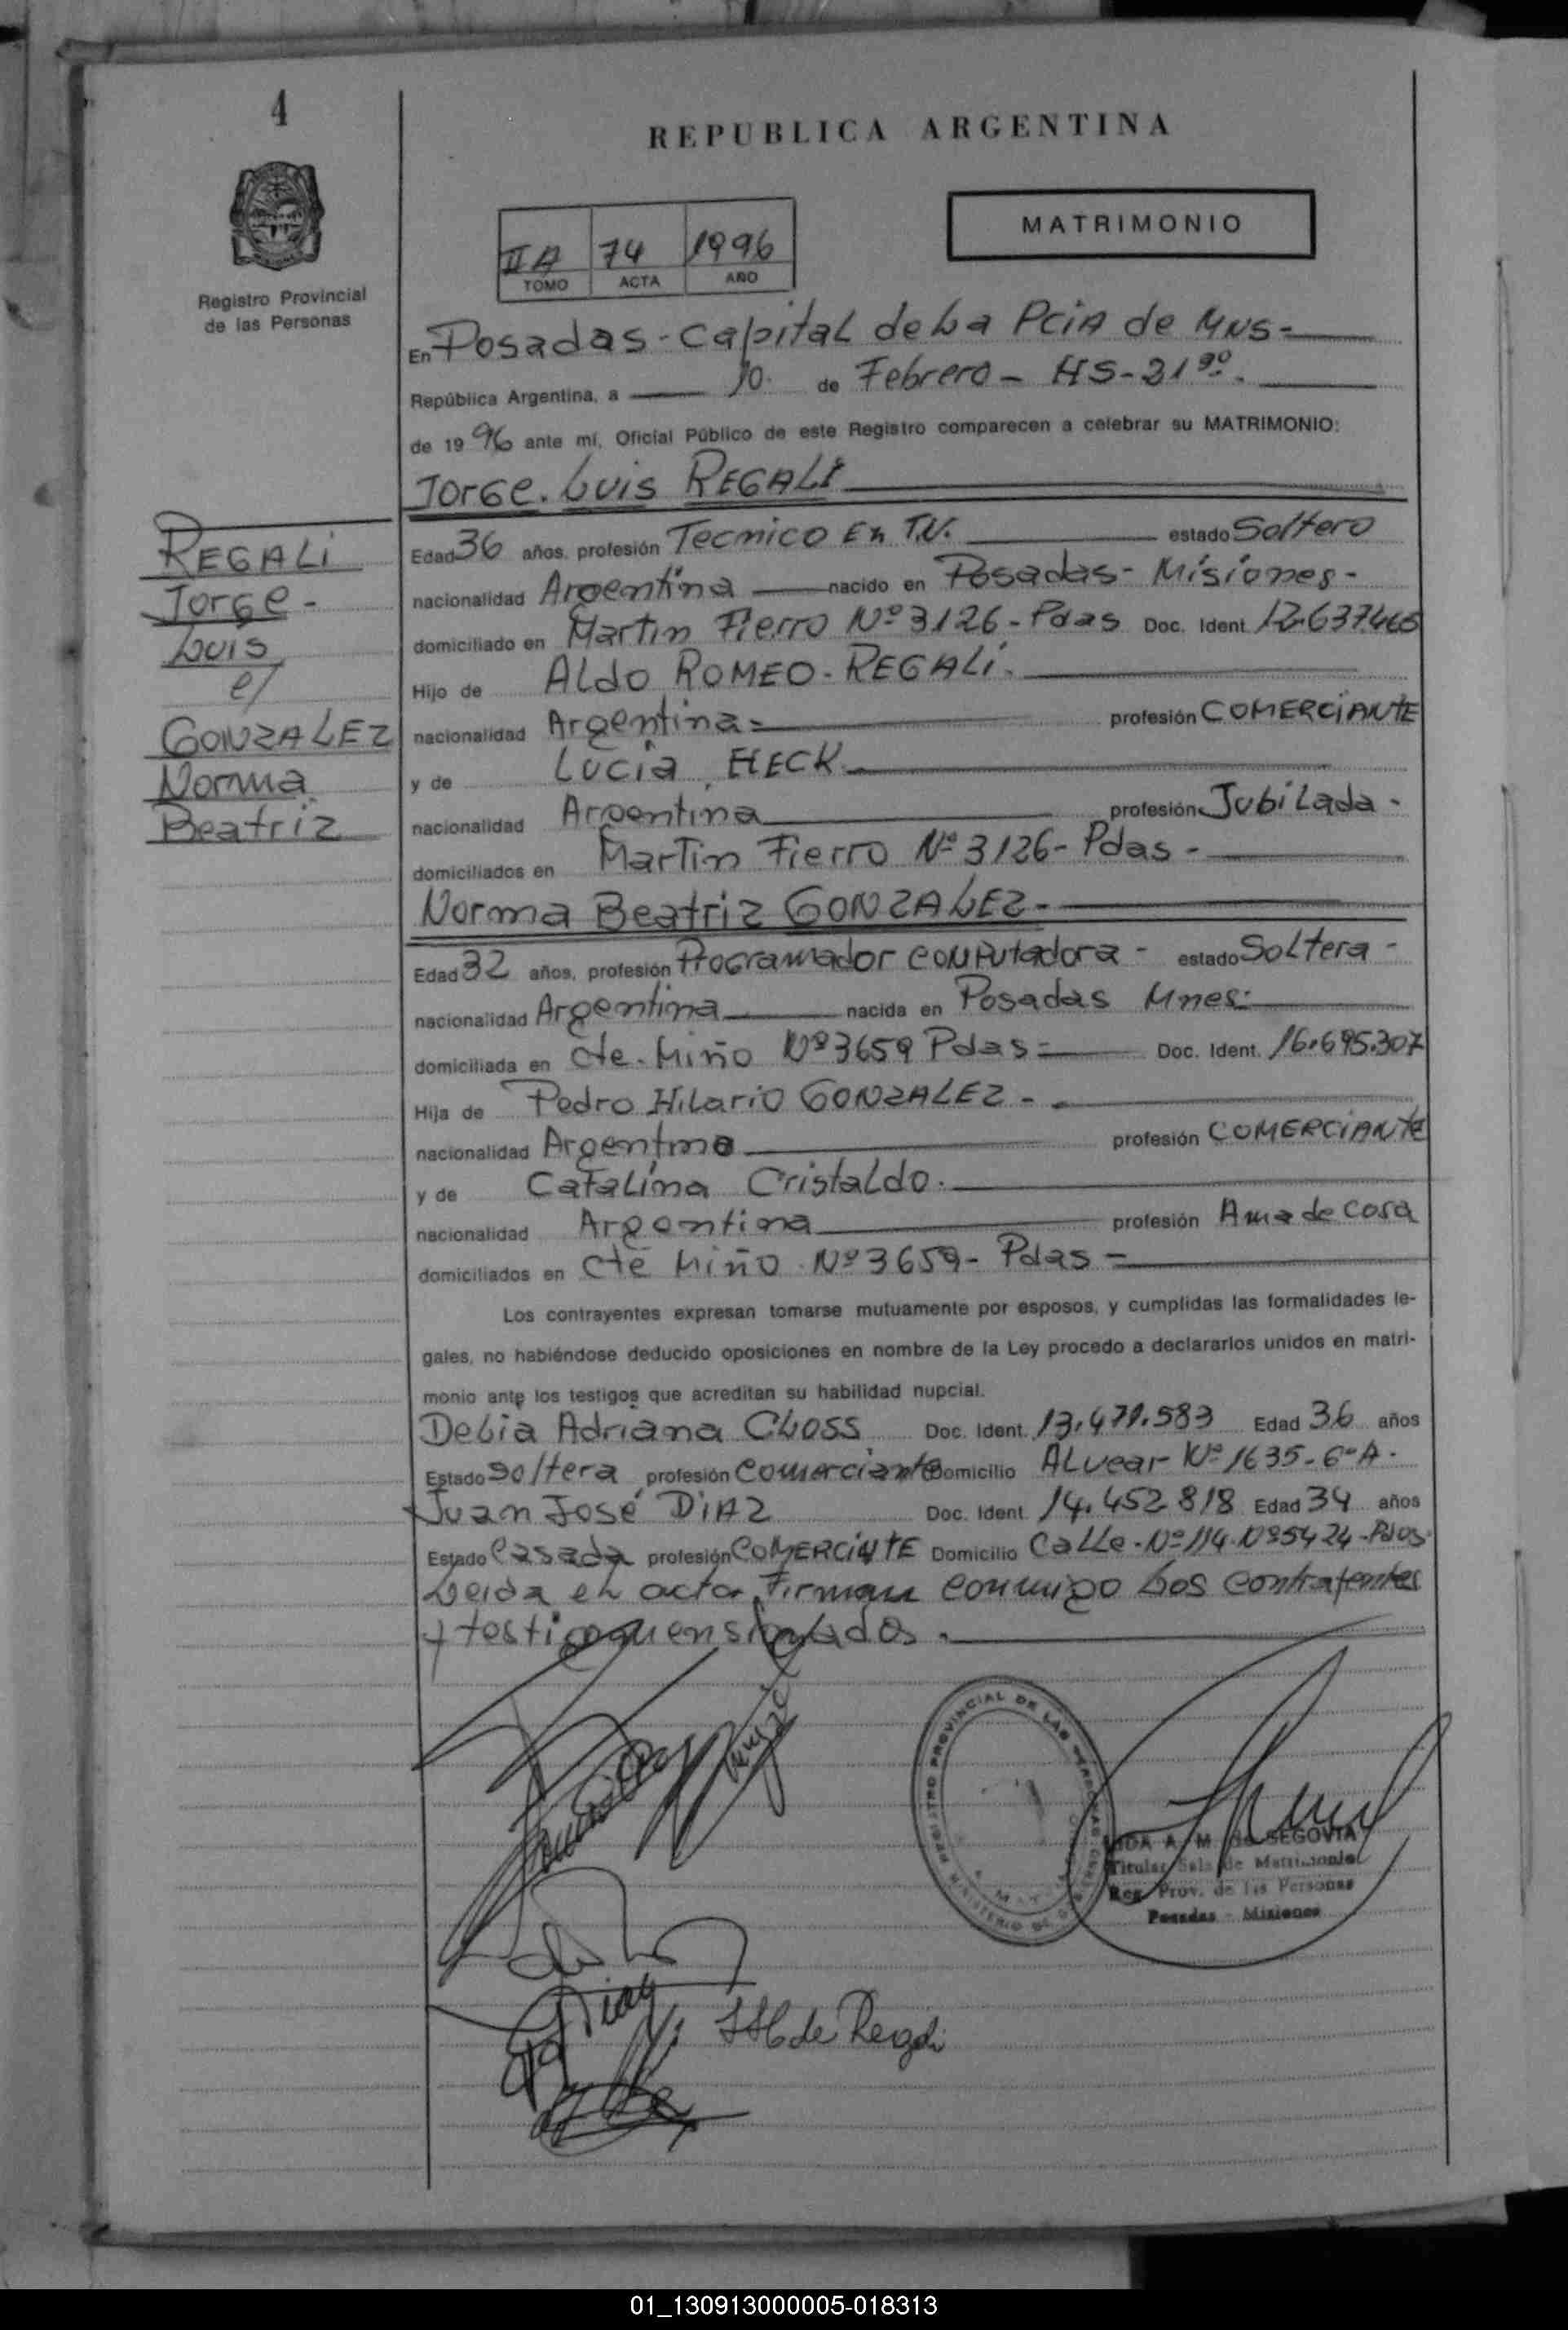 4
REPUBLICA ARGENTINA
MATRIMONIO
II A 74 1996
TOMO ACTA AÑO
Registro Provincial
de las Personas
En Posadas - Capital de La PCiA de MNS -
República Argentina, a 10. de Febrero - HS - 21
de 1996 ante mí, Oficial Público de este Registro comparecen a celebrar su MATRIMONIO:
Jorge. Luis REGALi
REGALi
Jorge -
Luis
c/
GONZALEZ
Norma
Beatriz
Edad 36 años, profesión Tecnico En T.V. estado Soltero
nacionalidad Argentina nacido en Posadas - Misiones -
domiciliado en Martin Fierro Nº 3126 - Pdas Doc. Ident. 12.637.465
Hijo de ALdo ROMEO - REGALi.
nacionalidad Argentina = profesión COMERCiANTE
y de Lucia HECK
nacionalidad Argentina profesión JubiLada -
domiciliados en Martin Fierro Nº 3126 - Pdas -
Norma Beatriz GONZALEZ -
Edad 32 años, profesión Programador COMPutadora - estado SoLtera -
nacionalidad Argentina nacida en Posadas Mnes.
domiciliada en Cte. Miño Nº 3659 Pdas = Doc. Ident. 16.695.307
Hija de Pedro HiLario GONZALEZ -
nacionalidad Argentino profesión COMERCiANTE
y de CataLina CristaLdo.
nacionalidad Argentina profesión Ama de casa
domiciliados en Cte Miño Nº 3659 - Pdas =
Los contrayentes expresan tomarse mutuamente por esposos, y cumplidas las formalidades le-
gales, no habiéndose deducido oposiciones en nombre de la Ley procedo a declararlos unidos en matri-
monio ante los testigos que acreditan su habilidad nupcial.
DeLia Adriana CLOSS Doc. Ident. 13.471.583 Edad 36 años
Estado soltera profesión Comerciante Domicilio ALvear Nº 1635 - 6º A -
Juan José DiAZ Doc. Ident. 14.452.818 Edad 34 años
Estado Casada profesión COMERCiNTE Domicilio CaLLe - Nº 114 - Nº 5424 - Pdas
Leida el acta, Firman conmigo Los contrayentes
y testigo mensionados.
REGISTRO PROVINCIAL DE LAS PERSONAS
A. M. de SEGOVIA
Titular Sala de Matrimonio
Reg. Prov. de las Personas
Posadas - Misiones
Diaz
de Regali
01_130913000005-018313